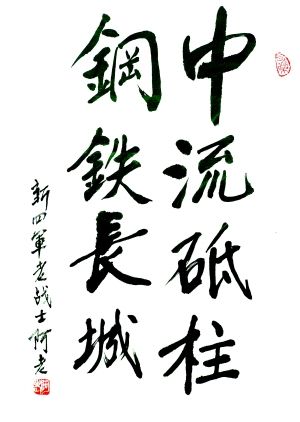 中流砥柱
鋼鉄長城
新四軍老战士阿老